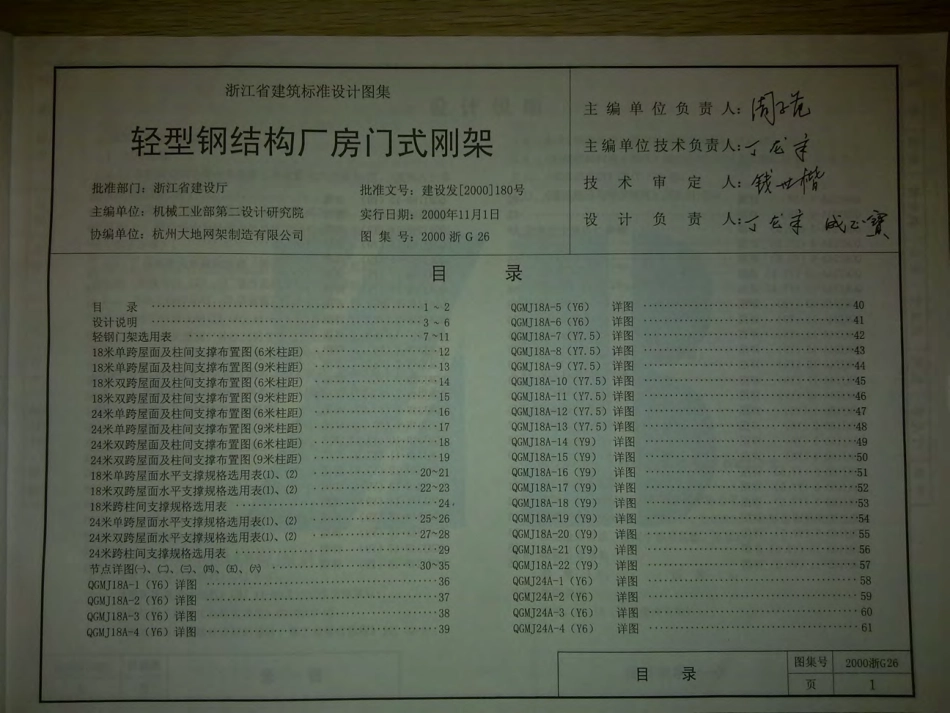 浙江省建筑标准设计图集
轻型钢结构厂房门式刚架
批准部门：浙江省建设厅
主编单位：机械工业部第二设计研究院
协编单位：杭州大地网架制造有限公司
批准文号：建设发[2000]180号
实行日期：2000年11月1日
图 集 号：2000 浙 G 26
主 编 单 位 负 责 人：
主编单位技术负责人：丁龙章
技 术 审 定 人：钱世楷
设 计 负 责 人：丁龙章
目 录
目 录 1 ~ 2
设计说明 3 ~ 6
轻钢门架选用表 7 ~11
18米单跨屋面及柱间支撑布置图(6米柱距) 12
18米单跨屋面及柱间支撑布置图(9米柱距) 13
18米双跨屋面及柱间支撑布置图(6米柱距) 14
18米双跨屋面及柱间支撑布置图(9米柱距) 15
24米单跨屋面及柱间支撑布置图(6米柱距) 16
24米单跨屋面及柱间支撑布置图(9米柱距) 17
24米双跨屋面及柱间支撑布置图(6米柱距) 18
24米双跨屋面及柱间支撑布置图(9米柱距) 19
18米单跨屋面水平支撑规格选用表⑴、⑵ 20~21
18米双跨屋面水平支撑规格选用表⑴、⑵ 22~23
18米跨柱间支撑规格选用表 24
24米单跨屋面水平支撑规格选用表⑴、⑵ 25~26
24米双跨屋面水平支撑规格选用表⑴、⑵ 27~28
24米跨柱间支撑规格选用表 29
节点详图㈠、㈡、㈢、㈣、㈤、㈥ 30~35
QGMJ18A-1（Y6）详图 36
QGMJ18A-2（Y6）详图 37
QGMJ18A-3（Y6）详图 38
QGMJ18A-4（Y6）详图 39
QGMJ18A-5（Y6） 详图 40
QGMJ18A-6（Y6） 详图 41
QGMJ18A-7（Y7.5） 详图 42
QGMJ18A-8（Y7.5） 详图 43
QGMJ18A-9（Y7.5） 详图 44
QGMJ18A-10（Y7.5） 详图 45
QGMJ18A-11（Y7.5） 详图 46
QGMJ18A-12（Y7.5） 详图 47
QGMJ18A-13（Y7.5） 详图 48
QGMJ18A-14（Y9） 详图 49
QGMJ18A-15（Y9） 详图 50
QGMJ18A-16（Y9） 详图 51
QGMJ18A-17（Y9） 详图 52
QGMJ18A-18（Y9） 详图 53
QGMJ18A-19（Y9） 详图 54
QGMJ18A-20（Y9） 详图 55
QGMJ18A-21（Y9） 详图 56
QGMJ18A-22（Y9） 详图 57
QGMJ24A-1（Y6） 详图 58
QGMJ24A-2（Y6） 详图 59
QGMJ24A-3（Y6） 详图 60
QGMJ24A-4（Y6） 详图 61
目 录
图集号 2000浙G26
页 1